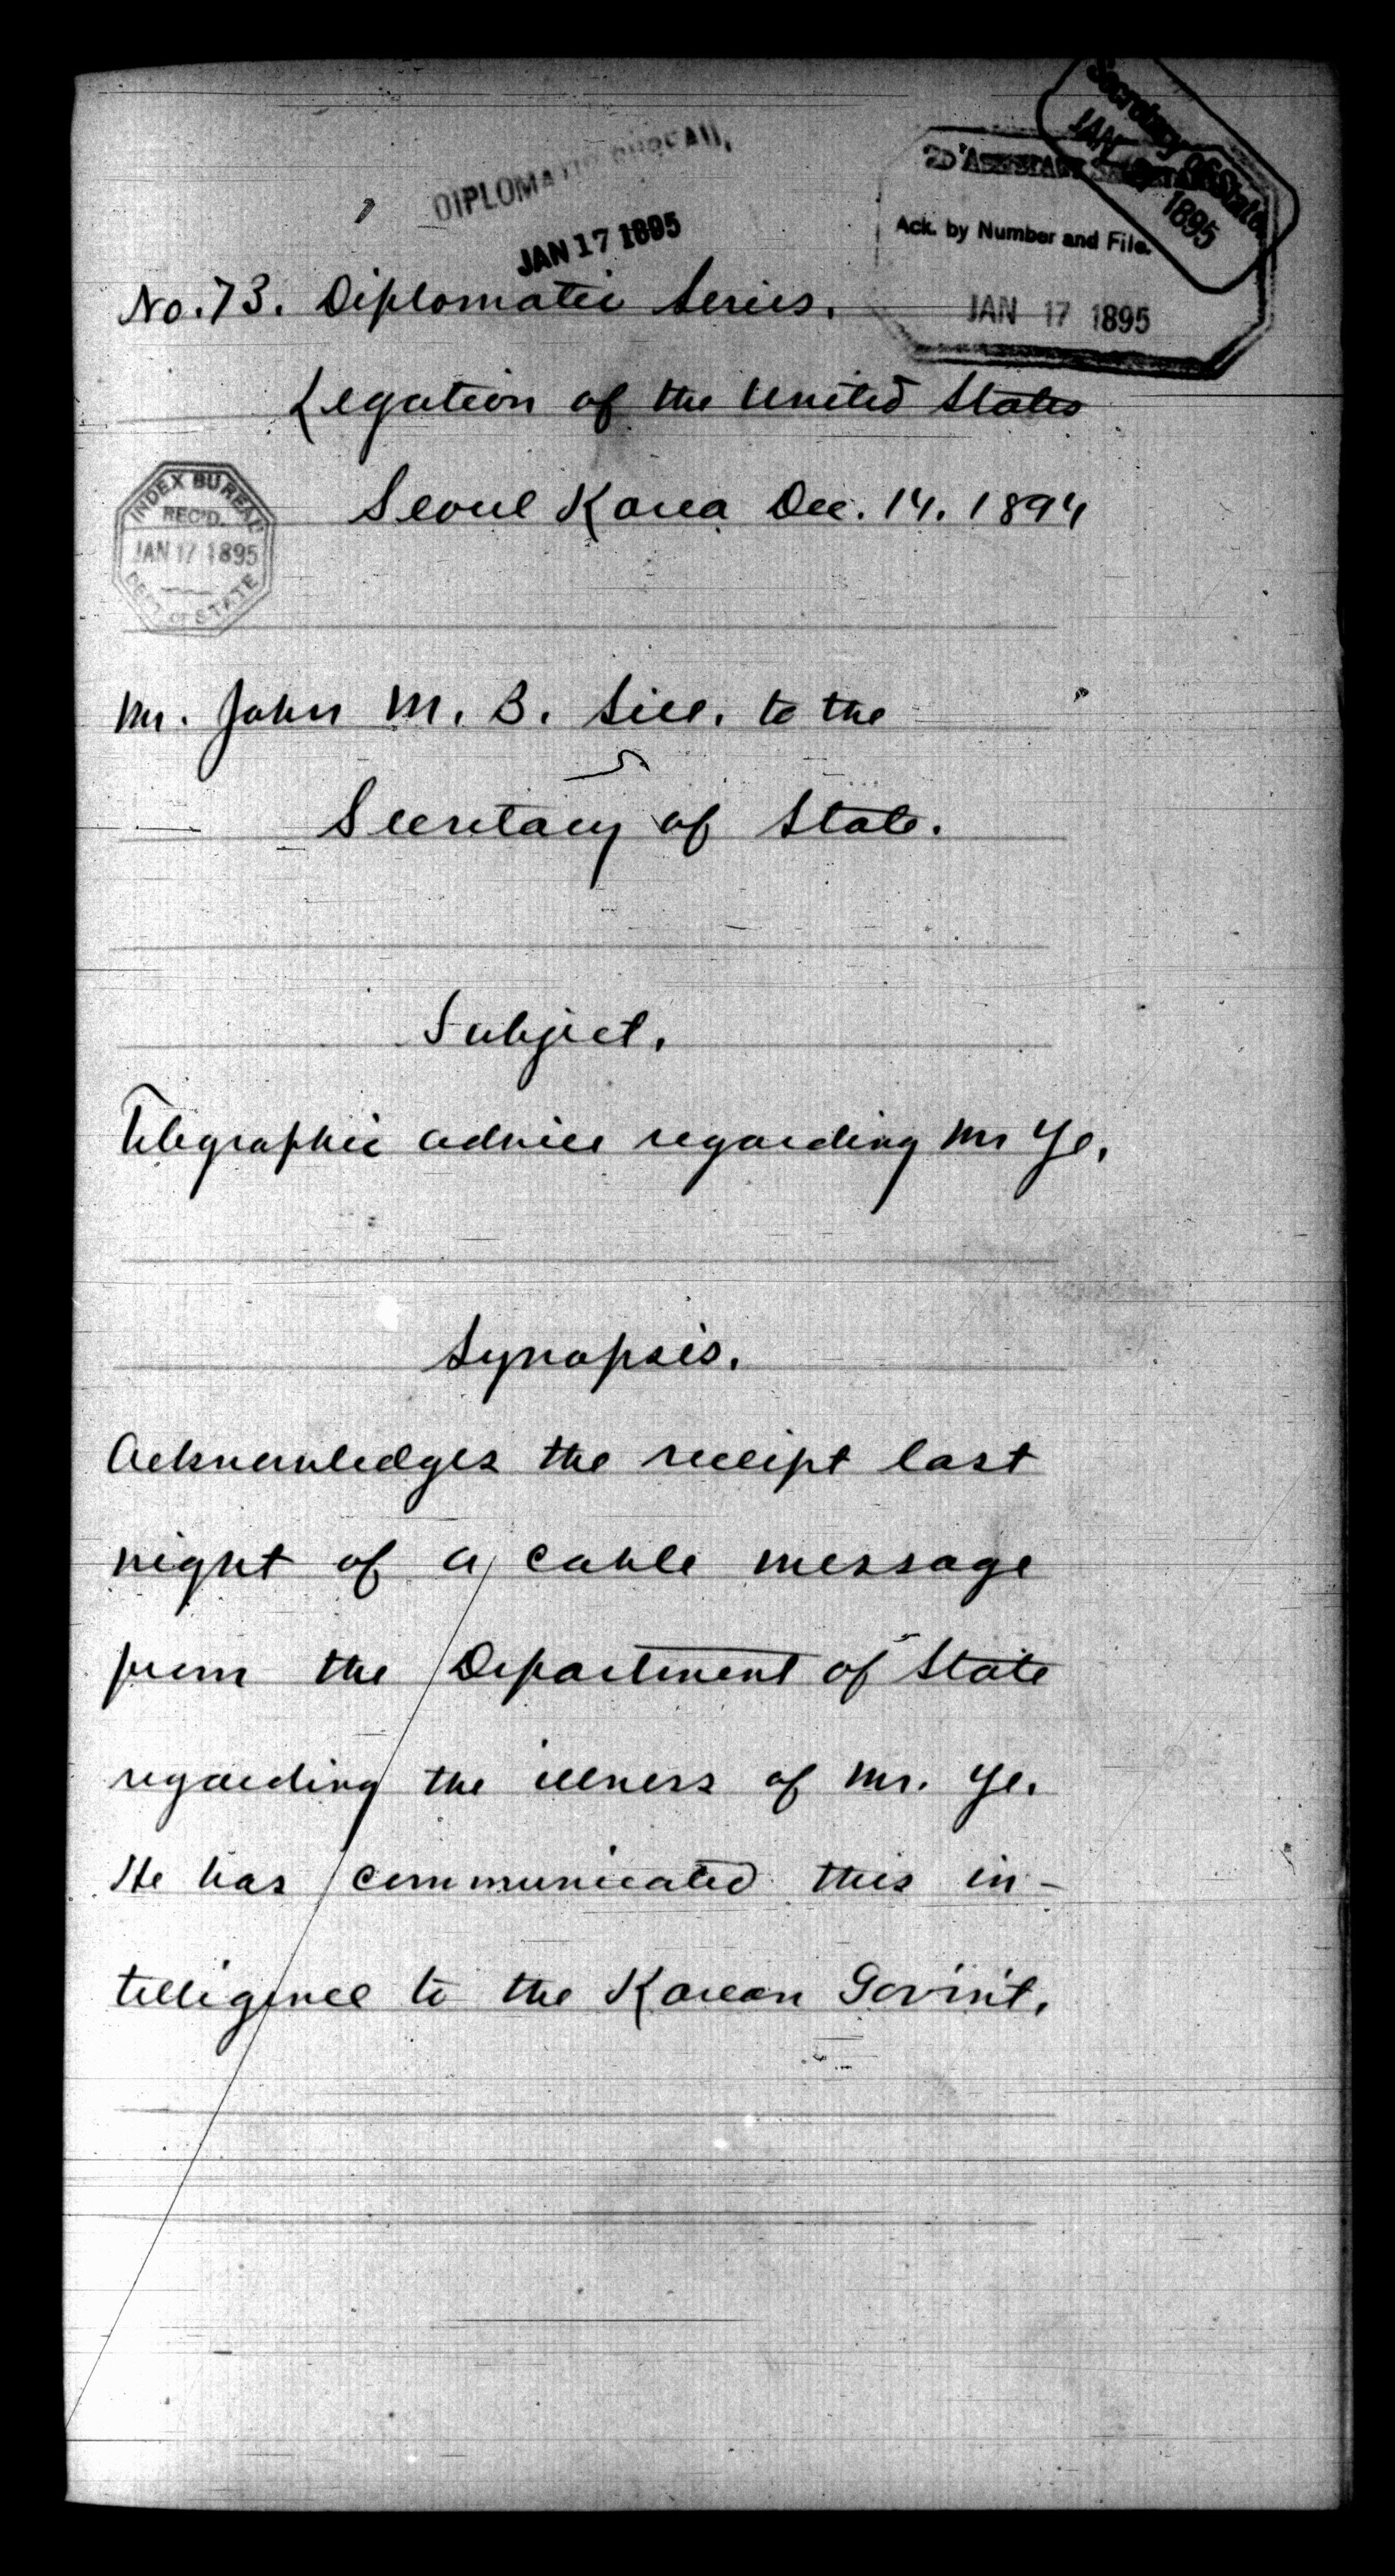 DIPLOMATIC BUREAU,
JAN 17 1895
Secretary of State,
JAN 1895
2D ASSISTANT
Ack. by Number and File.
JAN 17 1895
No. 73. Diplomatic Series.
Legation of the United States
Seoul Korea Dec. 14. 1894
INDEX BUREAU
REC'D.
JAN 17 1895
DEPT. OF STATE
Mr. John M. B. Sill. to the
Secretary of State.
Subject.
Telegraphic advice regarding Mr Ye.
Synopsis.
Acknowledges the receipt last
night of a cable message
from the Department of State
regarding the illness of Mr. Ye.
He has communicated this in-
telligence to the Korean Gov'm't.